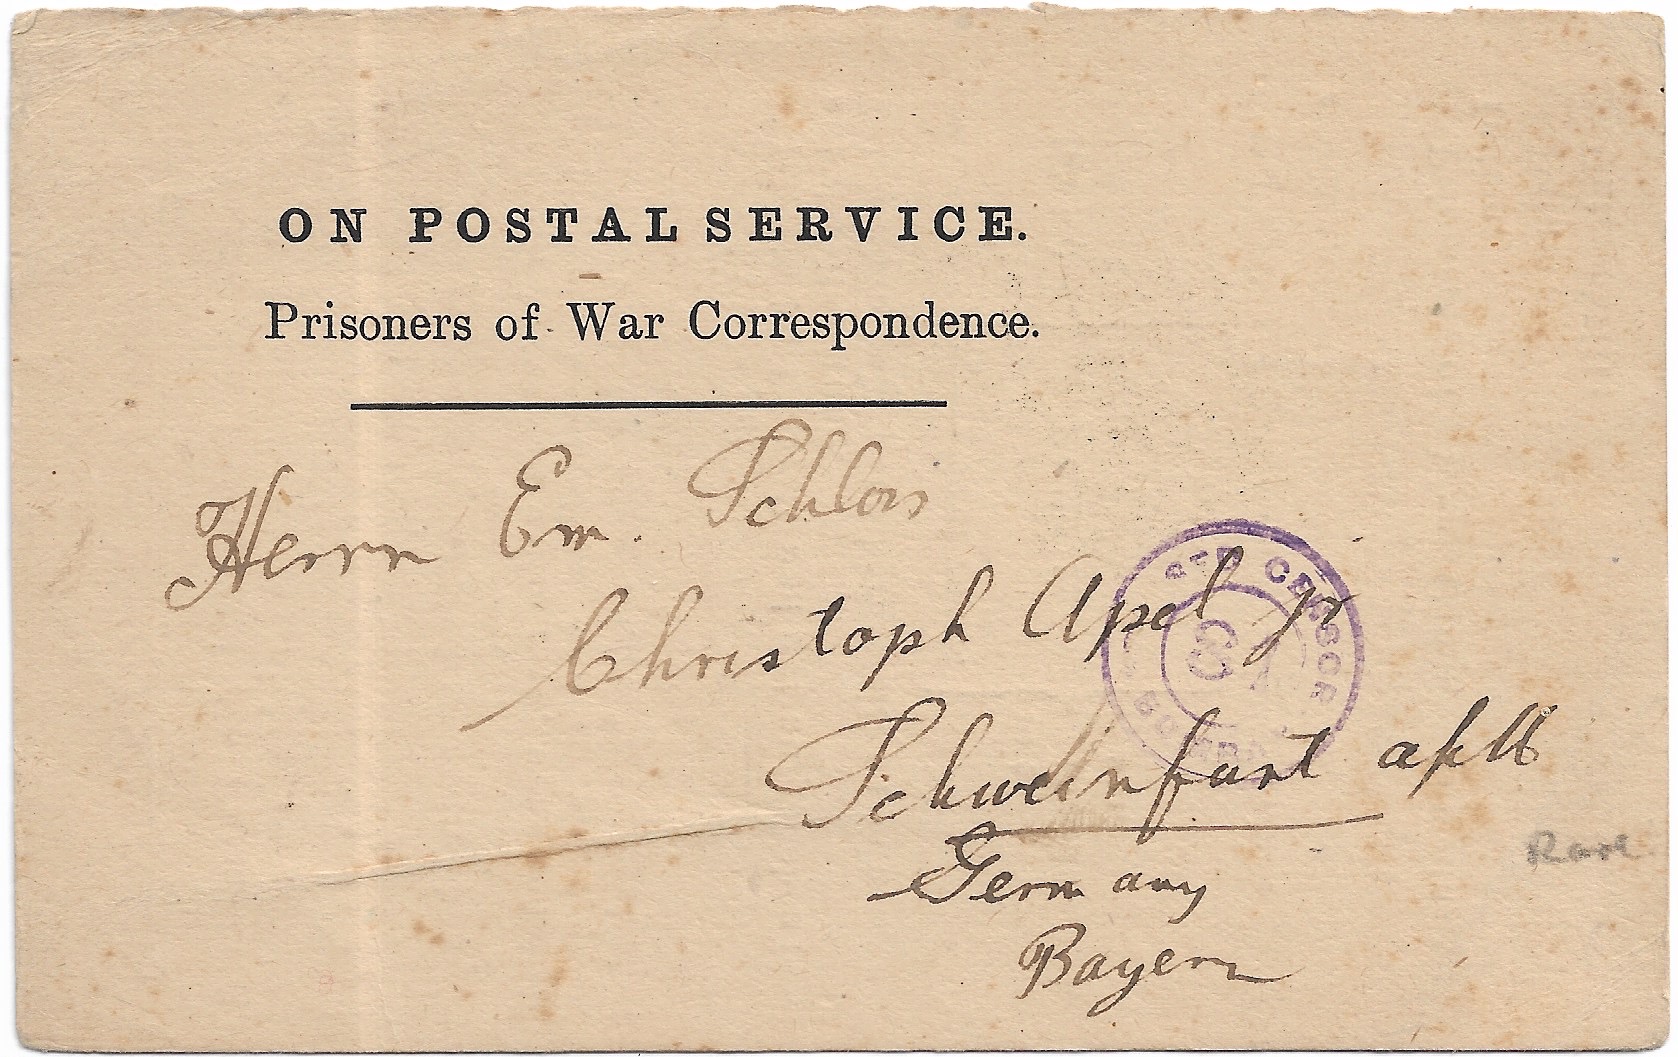 ON POSTAL SERVICE.
Prisoners of War Correspondence.
Herrn Em. Schlois
Christoph Apel jr
Schweinfurt a/M
Germany
Bayern
CENSOR
BOMBAY
Rare